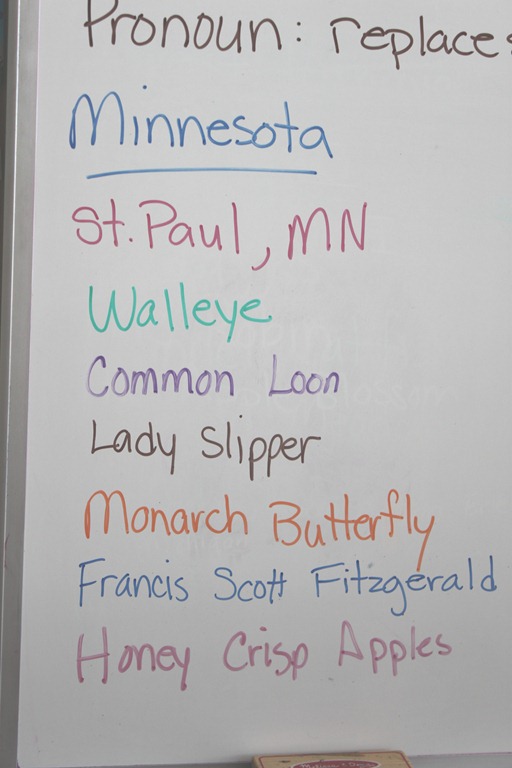 Pronoun: replaces
Minnesota
St. Paul, MN
Walleye
Common Loon
Lady Slipper
Monarch Butterfly
Francis Scott Fitzgerald
Honey Crisp Apples